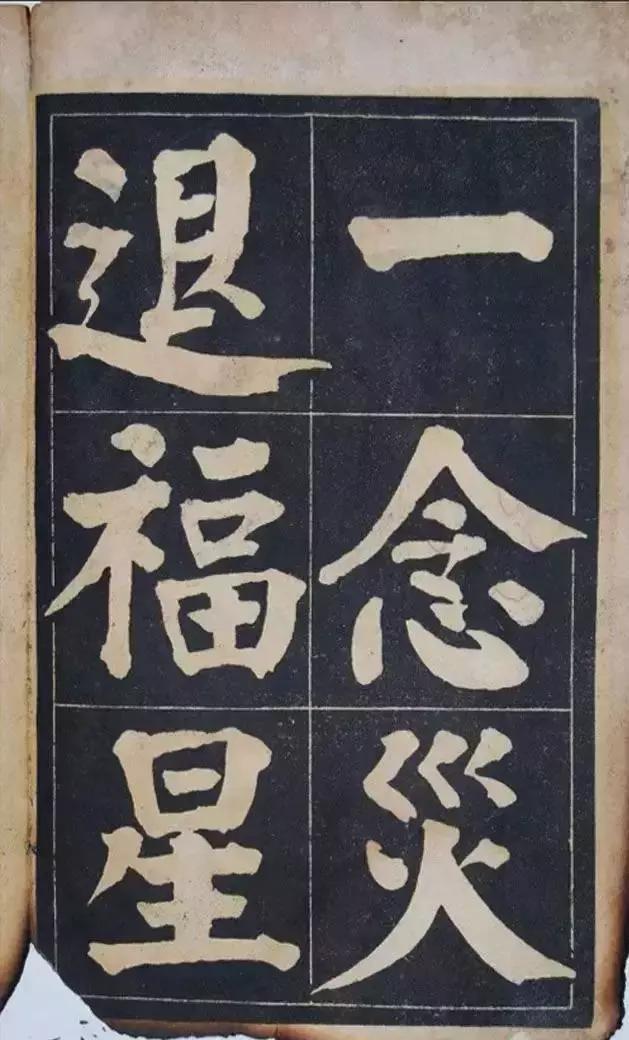 一念災
退福星